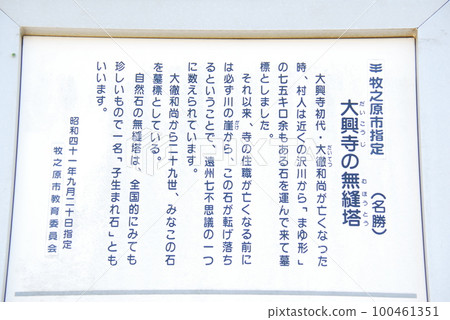 牧之原市指定 (名勝)
大興寺の無縫塔
だいこうじ むほうとう
大興寺初代・大徹和尚が亡くなった
時、村人は近くの沢川から「まゆ形」
の七五キロ余もある石を運んで来て墓
標としました。
それ以来、寺の住職が亡くなる前に
は必ず川の崖から、この石が転げ落ち
るということで、遠州七不思議の一つ
に数えられています。
大徹和尚から二十九世、みなこの石
を墓標としている。
自然石の無縫塔は、全国的にみても
珍しいもので一名「子生まれ石」とも
いいます。
昭和四十一年九月二十日指定
牧之原市教育委員会
PIXTA
100461351